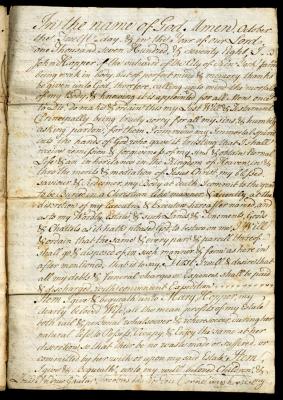 In the name of God, Amen, October
the Twelfth day, & in the Year of our Lord
one Thousand seven Hundred, & seventy Eight, I
John Hopper of the outward of the City of New York, farmer
being weak in body, but of perfect mind & memory, thanks
be given unto God, therefore calling unto mind the mortality
of my Body, & knowing it is appointed for all Men once
to Die, do make & ordain this my Last Will & Testament
Principally being truly sorry for all my sins & humbly
asking pardon for them I recommend my Immortal spirit
into the hands of God who gave it trusting that I shall
receive remission & forgiveness of my sins & obtain Eternal
Life & an inheritance in the Kingdom of Heaven in &
thro the merits & mediation of Jesus Christ my blessed
saviour & Redeemer, my Body at Death I commit to the ground
to be buried in a Christian like manner & decently at the
discretion of my Executrix & Executors hereafter named, and
as to my Worldly Estate & such Lands & Tenements, Goods
& Chattels as it hath pleased God to bestow on me, I Will
& ordain that the same & every part & parcel thereof
shall go & disposed of in such manner & form as here in
after mentioned, that is to say, First, I will & desire that
all my debts & funeral charges & Expences shall be paid
& discharged with convenient Expedition
Item I give & bequeath unto Mary Hopper, my
dearly beloved Wife, all the mean profits of my Estate
both real & personal whatsoever & wheresoever, during her
natural life to possess, Occupy & Enjoy the same at her
discretion, so that there be no waste made or suffered or
committed by her will or upon my said Estate, Item
I give & Bequeath unto my well beloved Children,